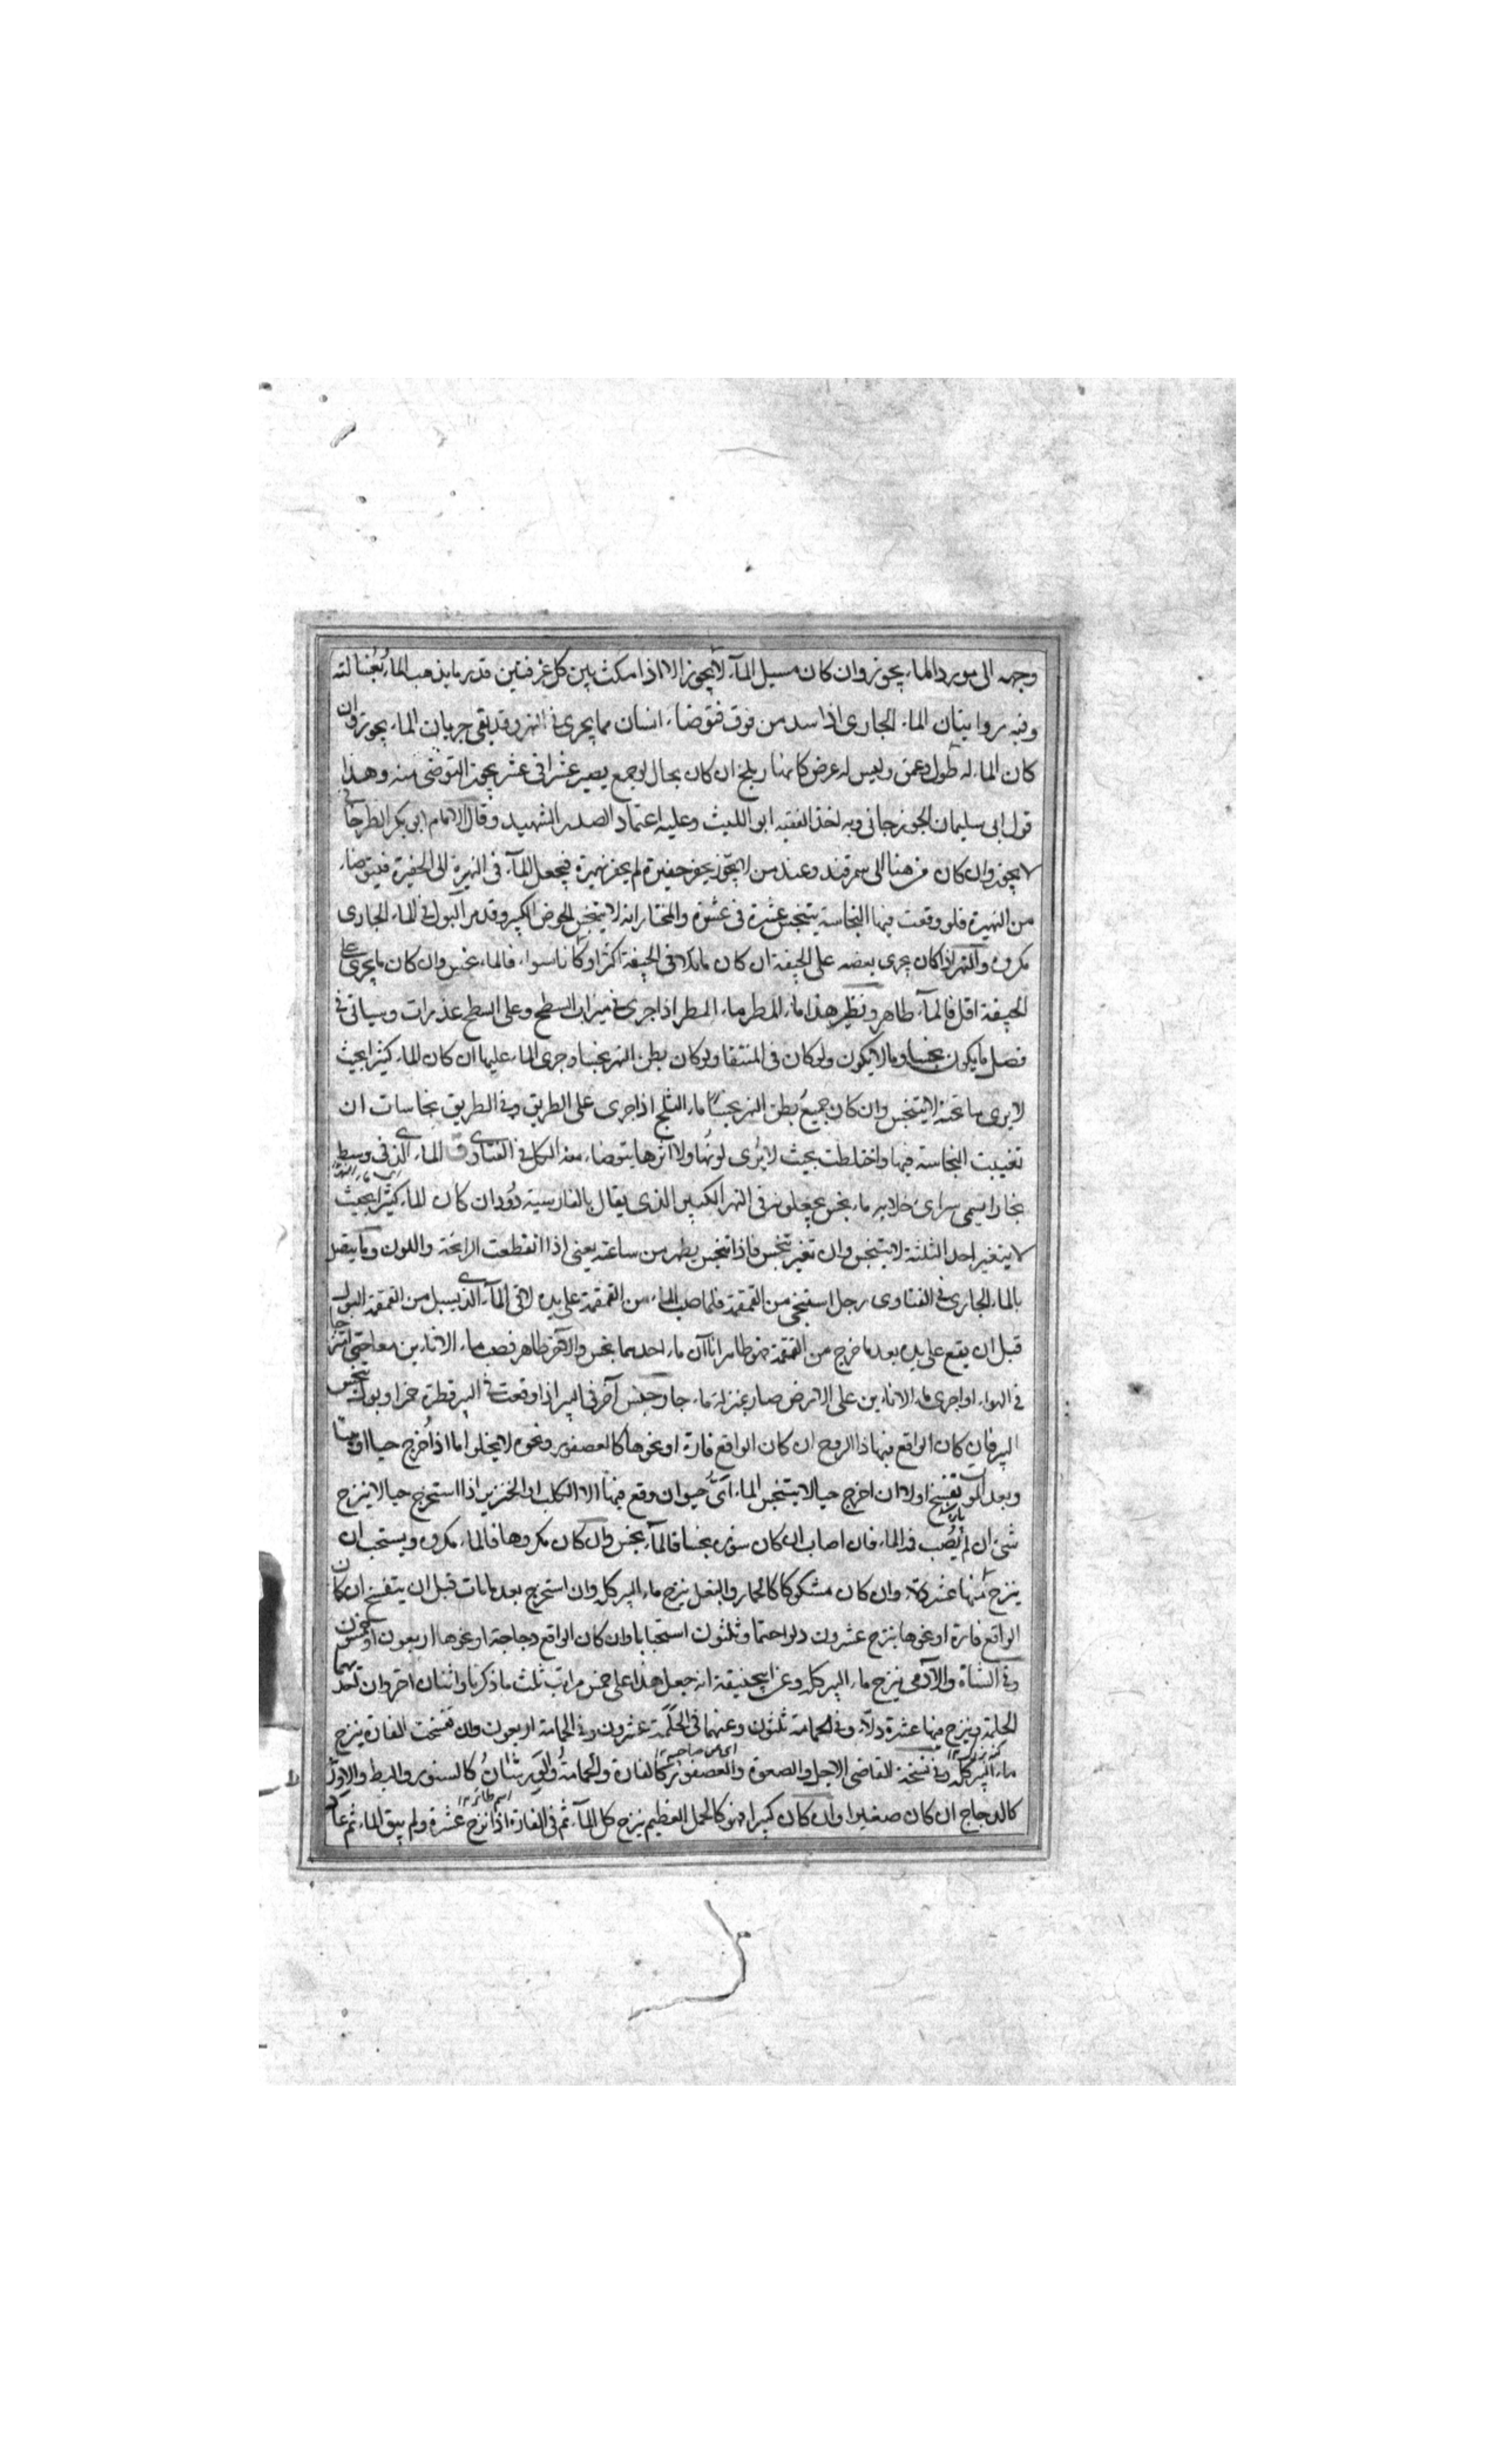 وجهه الى مورد الماء يجوز وان كان مسيل الماء لا يجوز الا اذا مكث بين كل غرفتين قدر ما يذهب الماء بغسالته
وفيه روايتان الماء الجارى اذا سد من فوق فتوضاء انسان مما يجرى فى النهر وقد بقى جريان الماء يجوز وان
كان الماء له طول وعمق وليس له عرض كانهار بلخ ان كان بحال لو جمع يصير عشرا فى عشر يجوز التوضى منه وهذا
قول ابى سليمان الجوزجانى وبه اخذ الفقيه ابو الليث وعليه اعتماد الصدر الشهيد وقال الامام ابو بكر الطرخانى
لا يجوز وان كان من هنا الى سمرقند وعند من لا يجوز يحفر حفيرة ثم يحفر نهيرة فيجعل الماء فى النهيرة الى الحفيرة فيتوضاء
من النهيرة فلو وقعت فيها النجاسة يتنجس عشرة فى عشرة والمختار انه لا يتنجس الحوض الكبير وقدر البول فى الماء الجارى
مكروه والنهر اذا كان يجرى بعضه على الجيفة ان كان ما يلاقى الجيفة اكثر او كانا سواء فالماء نجس وان كان ما يجرى على
الجيفة اقل فالماء طاهر ونظير هذا ماء المطر ماء المطر اذا جرى فى ميزاب السطح وعلى السطح عذرات وسياتى فى
فصل ما يكون نجسا وما لا يكون ولو كان فى المنتقا ولو كان بطن النهر نجسا وجرى الماء عليها ان كان الماء كثيرا بحيث
لا يرى ما تحته لا يتنجس وان كان جميع بطن النهر نجسا ماء الثلج اذا جرى على الطريق وفى الطريق نجاسات ان
تغيبت النجاسة فيها واختلطت بحيث لا يرى لونها ولا اثرها يتوضاء منه الكل فى الفتاوى الماء الذى فى وسط
بخارا يسمى سراى ماء نجس يجعلونه فى النهر الكبير الذى يقال بالفارسية رود ان كان الماء كثيرا بحيث
لا يتغير احد الثلثة لا يتنجس وان تغير تنجس فاذا تنجس يطهر من ساعته يعنى اذا انقطعت الرائحة واللون وما يتصل
بالماء الجارى فى الفتاوى رجل استنجى من القمقمة فلما صب الماء من القمقمة على يده لاقى الماء الذى يسيل من القمقمة البول
قبل ان يقع على يده بعد ما خرج من القمقمة فهو طاهر اناآن ماء احدهما نجس والاخر طاهر فصب ماء الانائين معا حتى امتزجا
فى الهواء او اجرى ماء الانائين على الارض صار بمنزلة ماء جار وجنس آخر فى البير اذا وقعت فى البير قطرة خمر او بول تنجس
البير فان كان الواقع فيها ذا الروح ان كان الواقع فارة او نحوها كالعصفور ونحوه لا يخلو اما اذا اخرج حيا او ميتا
وبعد الموت تفسخ اولا ان اخرج حيا لا يتنجس الماء اى حيوان وقع فيها الا الكلب او الخنزير اذا استخرج حيا لا ينزح
شئ ان لم يصب فمه الماء فان اصاب ان كان سؤره نجسا فالماء نجس وان كان مكروها فالماء مكروه ويستحب ان
ينزح منها عشر دلاء وان كان مشكوكا كالحمار والبغل ينزح ماء البير كله وان استخرج بعد ما مات قبل ان يتفسخ ان كان
الواقع فارة او نحوها ينزح عشرون دلوا حتما وثلثون استحبابا وان كان الواقع دجاجة او نحوها اربعون او خمسون
وفى الشاة والآدمى ينزح ماء البير كله وعن ابيحنيفة انه جعل هذا على خمس مراتب ثلث ما ذكرنا واثنان اخروان احديهما
الحلمة وينزح منها عشرة دلاء وفى الحمامة ثلثون وعنهما فى الحلمة عشرون وفى الحمامة اربعون وان تفسخت الفارة ينزح
ماء البير كله وفى نسخة القاضى الاجل والصعوة والعصفور كالفارة والحمامة والورشان كالسنور والبط والاوز
كالدجاج ان كان صغيرا وان كان كبيرا فهو كالحمل العظيم ينزح كل الماء ثم فى الفارة اذا نزح عشرة ولم يبق الماء ثم عاد